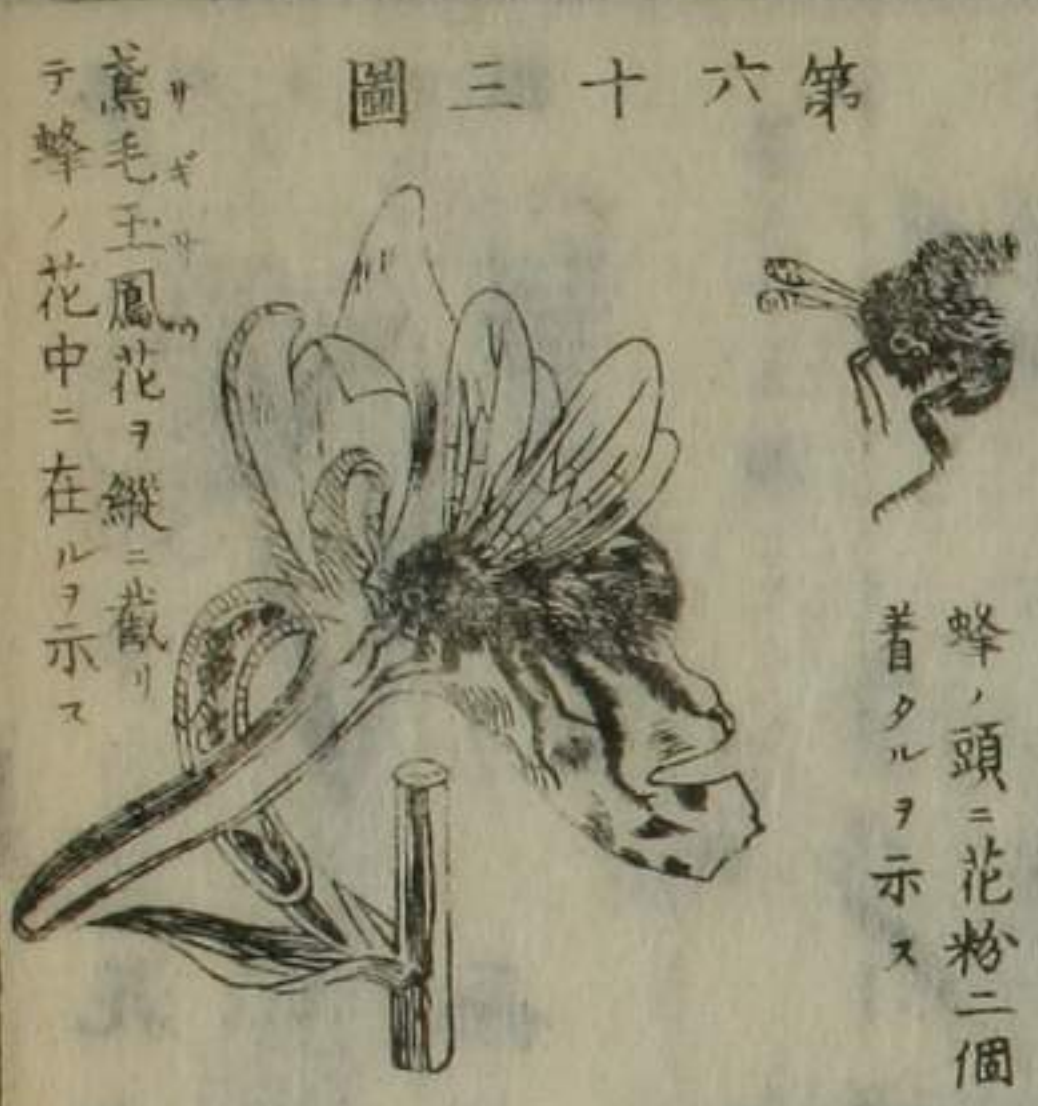 第六十三圖
蜂ノ頭ニ花粉二個
着タルヲ示ス
鳶毛玉鳳花ヲ縱ニ截リ
テ蜂ノ花中ニ在ルヲ示ス